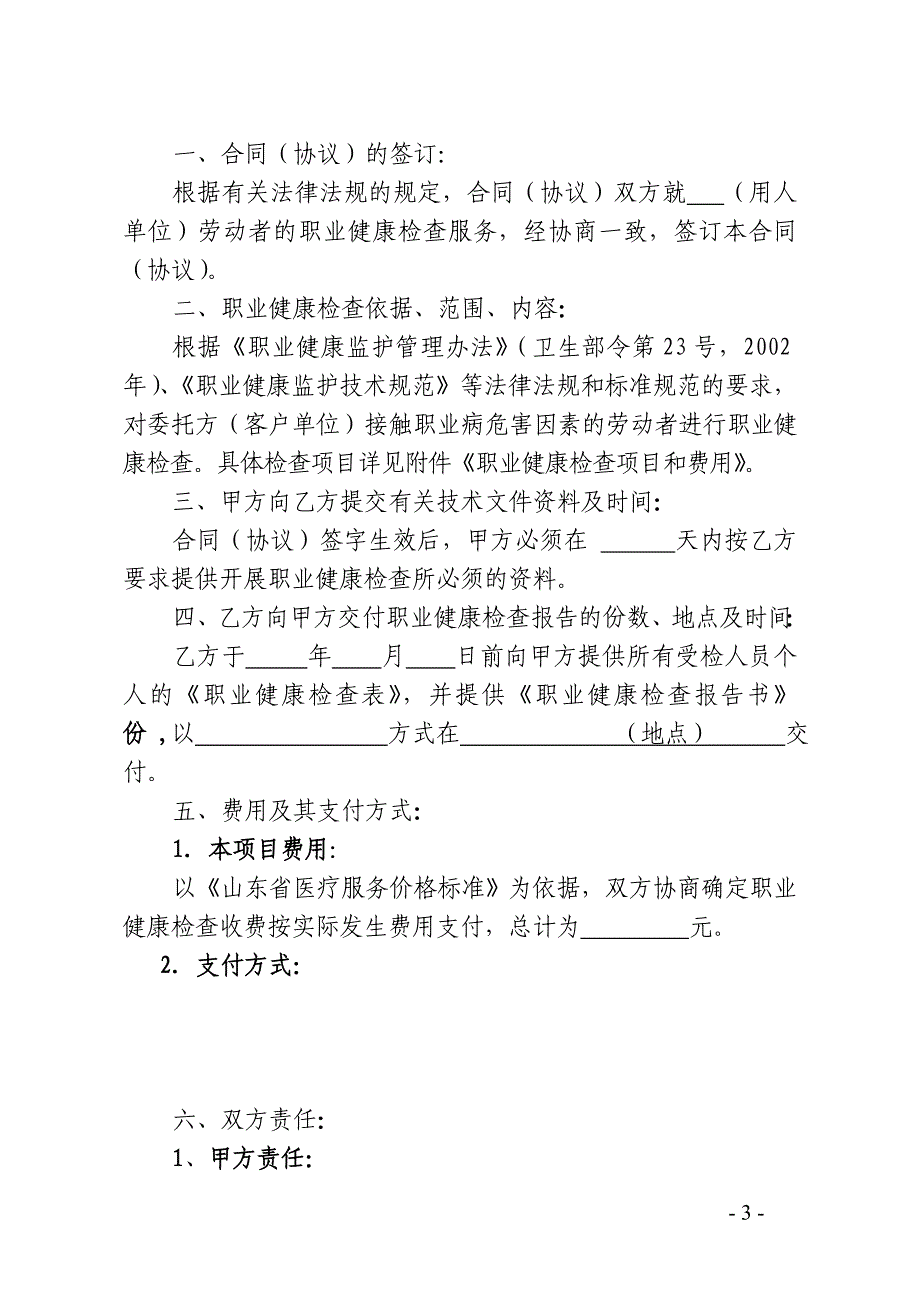 一、合同（协议）的签订：
根据有关法律法规的规定，合同（协议）双方就___（用人
单位）劳动者的职业健康检查服务，经协商一致，签订本合同
（协议）。
二、职业健康检查依据、范围、内容：
根据《职业健康监护管理办法》（卫生部令第 23 号，2002
年）、《职业健康监护技术规范》等法律法规和标准规范的要求，
对委托方（客户单位）接触职业病危害因素的劳动者进行职业健
康检查。具体检查项目详见附件《职业健康检查项目和费用》。
三、甲方向乙方提交有关技术文件资料及时间：
合同（协议）签字生效后，甲方必须在 ______天内按乙方
要求提供开展职业健康检查所必须的资料。
四、乙方向甲方交付职业健康检查报告的份数、地点及时间：
乙方于_____年____月____日前向甲方提供所有受检人员个
人的《职业健康检查表》，并提供《职业健康检查报告书》
份 ，以________________方式在_____________（地点）______交
付。
五、费用及其支付方式：
1．本项目费用：
以《山东省医疗服务价格标准》为依据，双方协商确定职业
健康检查收费按实际发生费用支付，总计为_________元。
2．支付方式：
六、双方责任：
1、甲方责任：
- 3 -